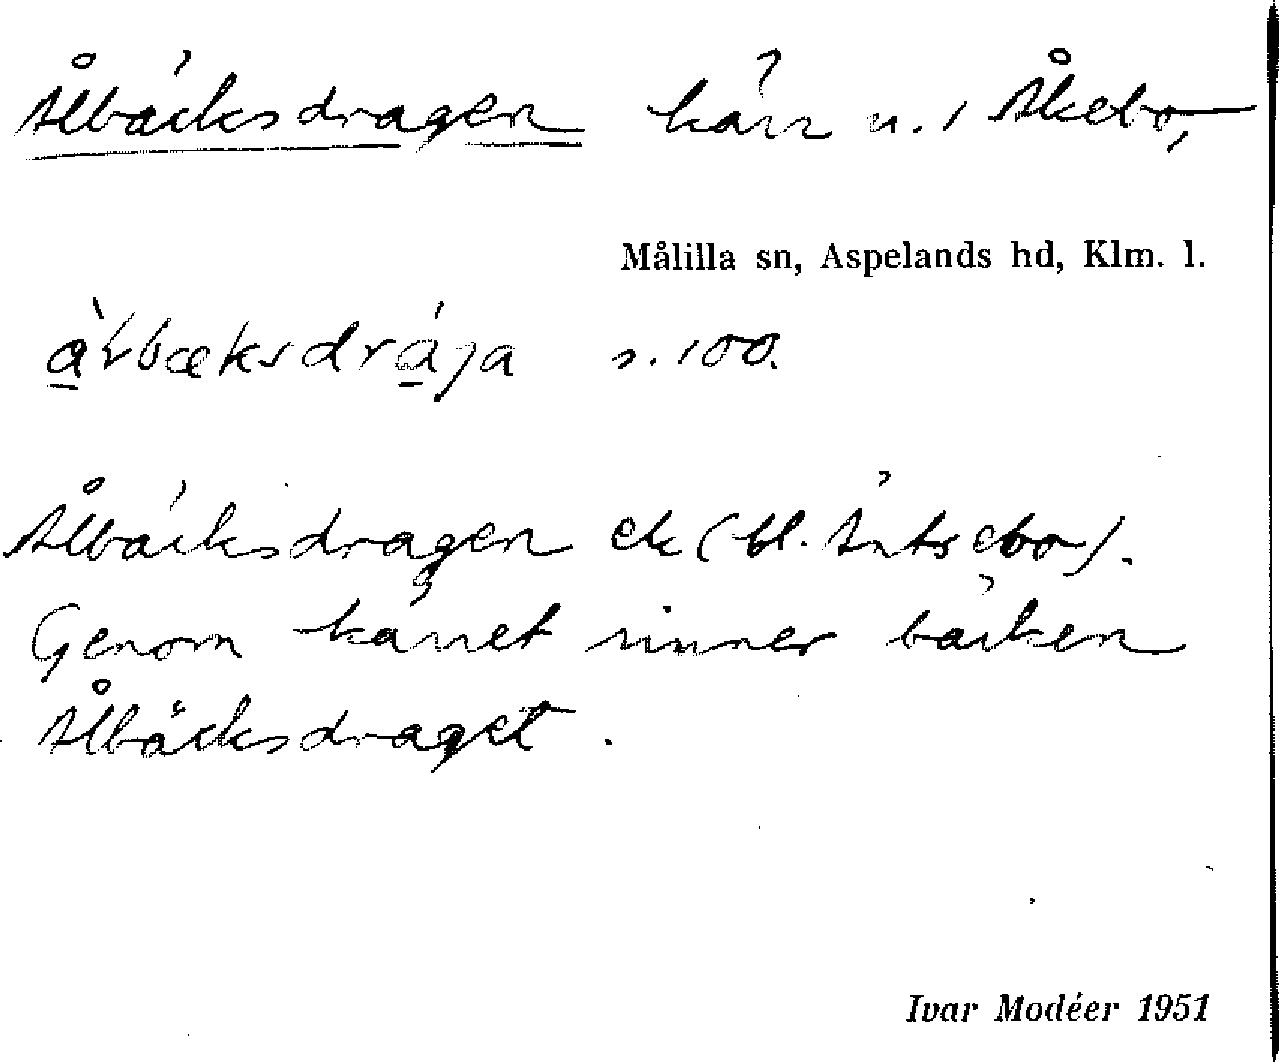 Ålbäcksdragen kärr n. 1 Åkebo,
Målilla sn, Aspelands hd, Klm. l.
s. 100.
Ålbäcksdragen ek (bl. Äntsebo).
Genom kärret rinner bäcken
Ålbäcksdraget.
Ivar Modéer 1951